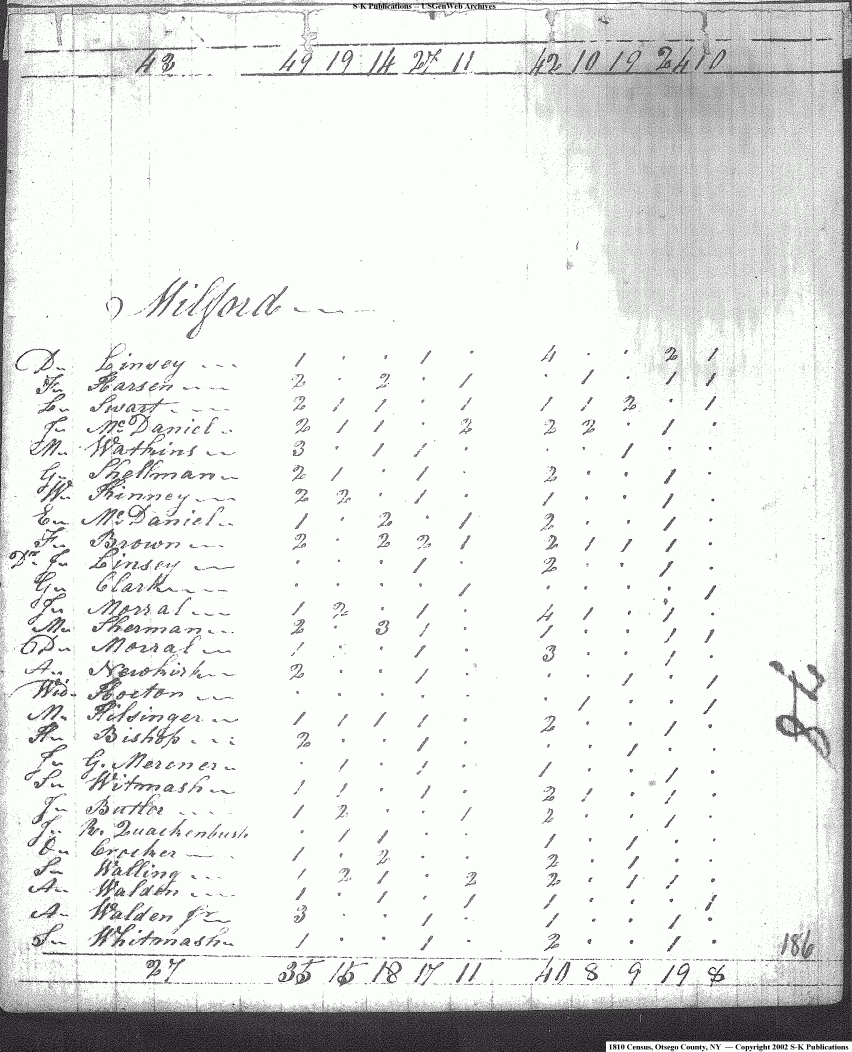 S-K Publications -- USGenWeb Archives
43 49 19 14 27 11 42 10 19 24 10
Milford
D. Linsey 1 . . 1 . 4 . . 2 1
F. Harsen 2 . 2 . 1 . 1 . 1 1
L. Swart 2 1 1 . 1 1 1 2 . 1
J. McDaniel 2 1 1 . 2 2 2 . 1 .
M. Watkins 3 . 1 1 . . . 1 . .
G. Shellman 2 1 . 1 . 2 . . 1 .
W. Kinney 2 2 . 1 . 1 . . 1 .
E. McDaniel 1 . 2 . 1 2 . . 1 .
F. Brown 2 . 2 2 1 2 1 1 1 .
Dr. J. Linsey . . . 1 . 2 . . 1 .
G. Clark . . . . 1 . . . . 1
J. Morral 1 2 . 1 . 4 1 . 1 .
M. Sherman 2 . 3 1 . 1 . . 1 1
D. Morral 1 . . 1 . 3 . . 1 .
A. Newkirk 2 . . 1 . . . 1 . 1
Wid. Horton . . . . . . 1 . . 1
M. Hilsinger 1 1 1 1 . 2 . . 1 .
H. Bishop 2 . . 1 . . . 1 . .
J. G. Merener . 1 . 1 . 1 . . 1 .
S. Witmash 1 1 . 1 . 2 1 . 1 .
J. Butler 1 2 . . 1 2 . . 1 .
J. R. Quackenbush . 1 1 . . 1 . 1 . .
O. Crocker 1 . 2 . . 2 . . 1 .
S. Walling . 2 1 . 2 2 . 1 1 .
A. Walden 1 . 1 . 1 1 . . . 1
A. Walden Jr 3 . . 1 . 1 . . 1 .
S. Whitmash 1 . . 1 . 2 . . 1 .
27 35 15 18 17 11 40 8 9 19 8
78
186
1810 Census, Otsego County, NY — Copyright 2002 S-K Publications